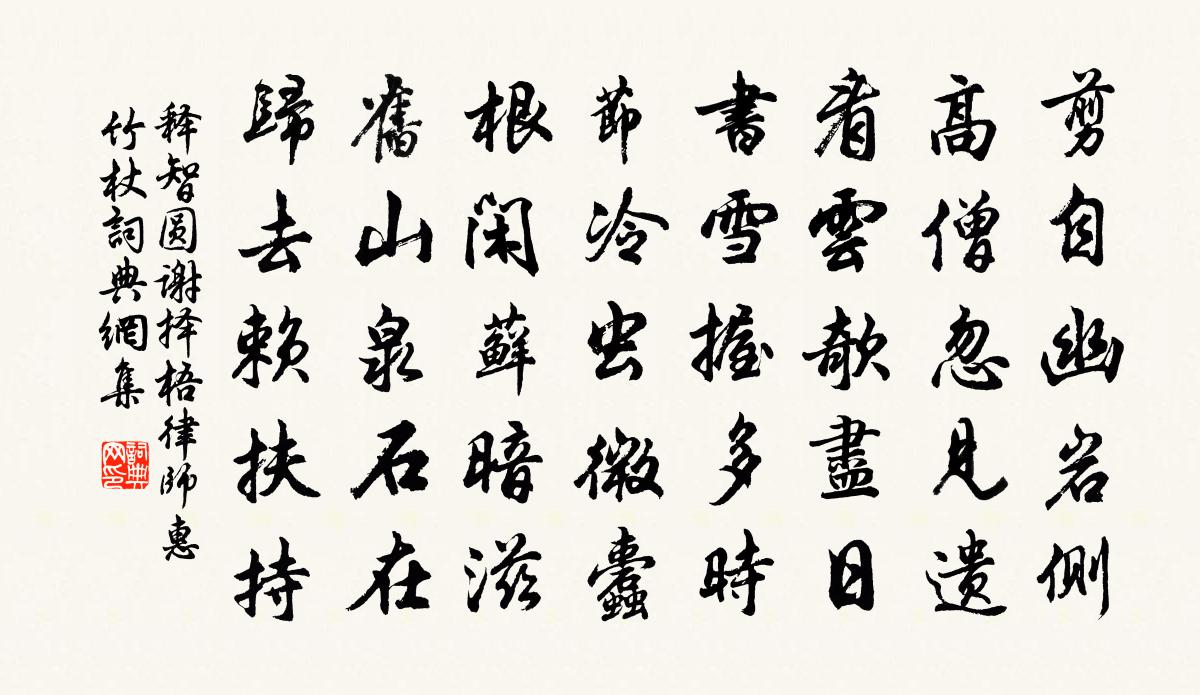 剪自幽岩側
高僧忽見遗
看雲欹盡日
書雪握多時
節冷虫微蠹
根閑蘚暗滋
舊山泉石在
歸去賴扶持
释智圆谢择梧律師惠
竹杖詞典網集
詞典网印